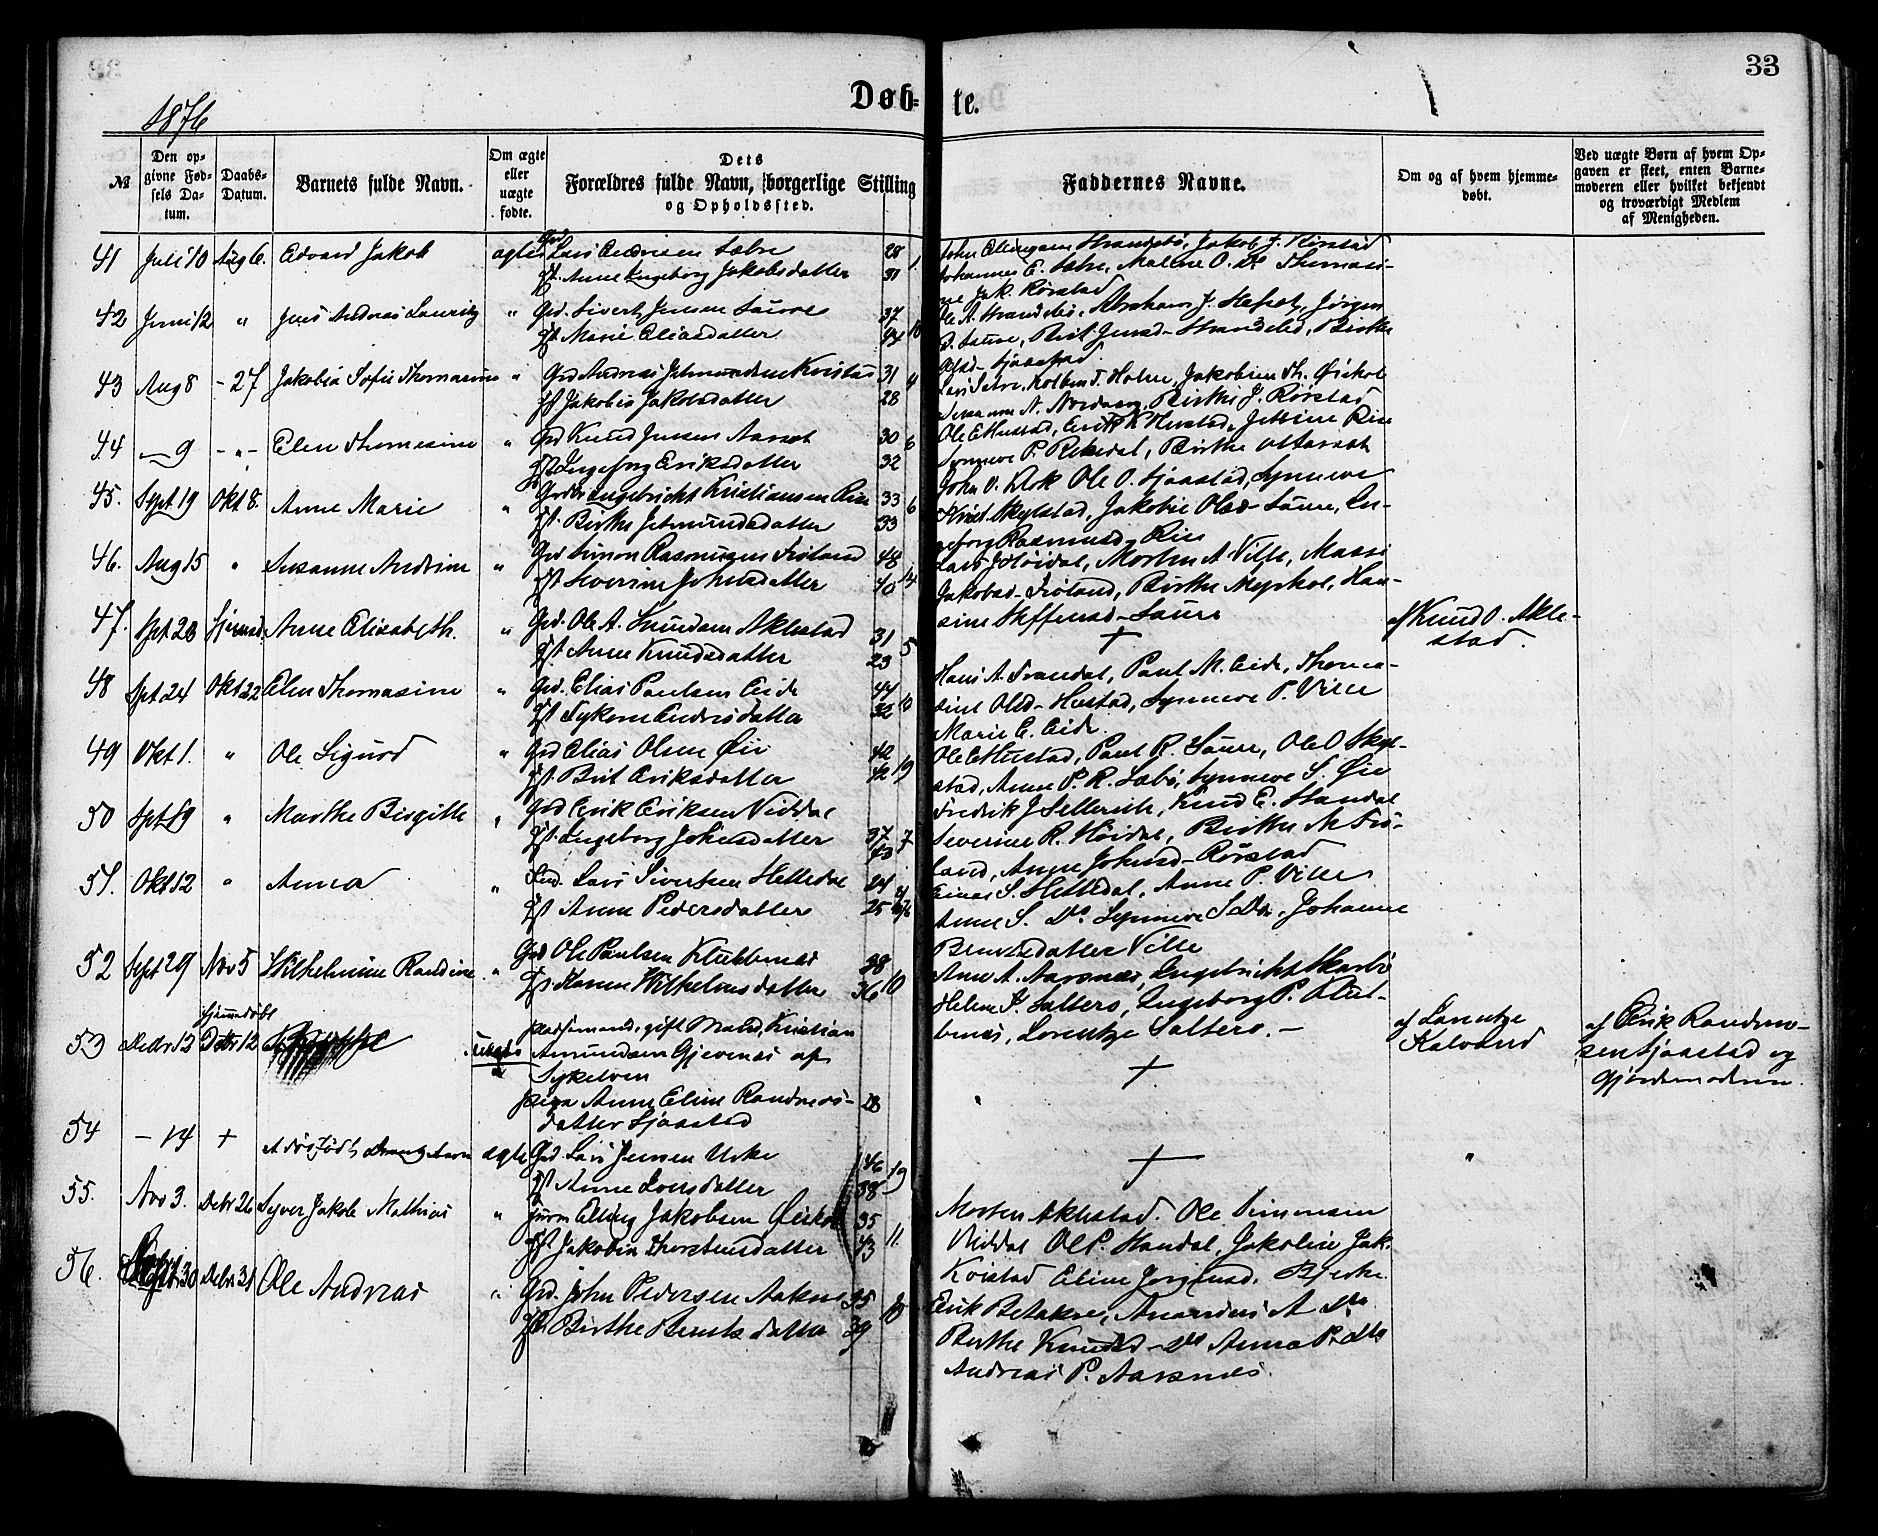 33
1876
Døb- te.
№
Den opgivne Fødsels Datum.
Daabs-Datum.
Barnets fulde Navn.
Om ægte eller uægte fødte.
Dets Forældres fulde Navn, borgerlige Stilling og Opholdssted.
Faddernes Navne.
Om og af hvem hjemmedøbt.
Ved uægte Børn af hvem Opgaven er skeet, enten Barnemoderen eller hvilket bekjendt og troværdigt Medlem af Menigheden.
41 Juli 10 Aug 6. Edvard Jakob ægte Lars Andersen Sætre 28 1
Hst. Anne Ingeborg Jakobsdatter 31
John Strandebø, Jakob J. Rørstad
Johannes E. Sætre, Malene O. Do Thomasi-
ne Jak. Rørstad
42 Juni 12 " Jens Andreas Lauritz " Grd. Sivert Jensen Saure 37 10
Hst. Marie Eliasdatter 44
Ole A. Strandebø, Abraham J. Jørgen
P. Saure, Brit Jensd- Birthe
Olsd- Sjaastad.
43 Aug 8 - 27 Jakobia Sofie Thomasine " Grd Andreas Jetmundsen Kvistad 31 4
Hst Jakobia Jakobsdatter 28
Lars Sætre, Kolben T. Holen, Jakobine Th. Ørskot
N. Nordang, Birthe J. Rørstad
44 - 9 -"- Elen Thomasine " Grd Knud Jensen Aarset 30 6
Hst Ingeborg Eriksdatter 32
Ole E Hustad, Erik K Hustad, Jettine Rise
Synneve P. Rekdal, Birthe Aarset
45. Sept 19 Okt 8. Anne Marie " Ingebrigt Kristiansen Rise 33 6
Hst. Birthe Jetmundsdatter 33
John O. Ole O. Sjaastad, Synneve
Knudsd. Skylstad, Jakobie Olsd- Saure, In-
geborg Rasmusd- Rise
46. Aug 15 " Susanne Andrine " Grd Simon Rasmusen Frøland 48 14
Hst Severine Johnsdatter 40
Lars J Høidal, Morten A Ville, Massi
Jakobsd- Frøland, Birthe Myrkol, Han-
sine Steffensd- Saure
47. Spt 23 Hjemmd. Anne Elisabeth. " Grd. Ole A. Aklestad 31 5
Hst Anne Knudsdatter 23
+
af Knud O. Akle-
stad.
48 Spt 24 Okt 22 Elen Thomasine " Grd. Elias Paulsen Eide 44 10
Hst Andersdatter 32
Hans A. Trandal, Paul M. Eide, Thoma-
sine Olsd- Hustad, Synneve P. Ville
Marie E. Eide.
49 Okt 1. " Ole Sigurd " Grd Elias Olsen Øie 42 19
Hst Brit Eriksdatter 42
Ole E Hustad, Paul R. Saure, Ole O Skyl-
stad, Anne P. R. Sæbø, Synneve S. Øie
50 Spt 19 " Marthe Birgitte " Grd Erik Eriksen Viddal 37 7
Hst Ingeborg Johnsdatter 43
Fredrik J Sellereite, Knud E. Standal
Severine R. Høidal, Birthe M Frø-
land, Anne Johnsd- Rørstad
51. Okt 12 " Anna " Lars Sivertsen Helledal 24
Hst Anne Pedersdatter 25
Einar S. Helledal, Anne P. Ville
Anne S. Do Synneve S Do, Johanne
Berntsdatter Ville
52 Sept 29 Nov 5 Wilhelmine Randine " Grd Ole Paulsen Klubbenæs 38 10
Hst Karen Wilhelmsdatter 36
Ane A. Aarsnæs, Ingebricht Skarbø
Helene P. Sætterø, Ingeborg P. Klub-
benæs, Lorentze Sætterø. -
53 Decbr 12 Hjemmedøbt Decbr 12 Uægte gift Mand, Kristian
Amundsen Gjevenæs af
Sykelven
Pige Anne Eline Randners- 28
datter Sjaastad
+
af Lorentze
Kalvund
af Erik Randner-
sen Sjaastad og
Gjordemoderen.
54 - 14 + dødfødt ægte Grd Lars Jensen Urke 46 19
Hst Anne Iversdatter 38
+
"
55. Nov 3. Decbr 26 Syver Jakob Mathias " Elling Jakobsen Ørskot 35 11.
Hst Jakobia Thorstensdatter 43
Morten Aklestad. Ole Simensen
Viddal Ole P. Standal, Jakobine Jak.
Kvistad Eline Jørgensd. Bjerke.
56. 30 Decbr 31 Ole Andreas " Grd. John Pedersen Aaknes 35 10
Hst Birthe Berntsdatter 39
Erik Betakre, A Do
Birthe Knudsd- Do Anna P. do
Andreas P. Aarsnes.